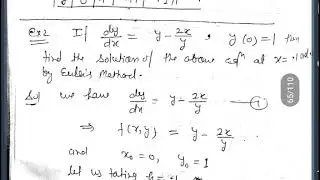 Ex2 If dy/dx = y - 2x/y, y(0)=1 then
find the solution of the above eqn at x = .1
by Euler's Method.
Sol we have dy/dx = y - 2x/y —①
⇒ f(x,y) = y - 2x/y
and x₀=0, y₀=1
let us taking h=.1
65/110